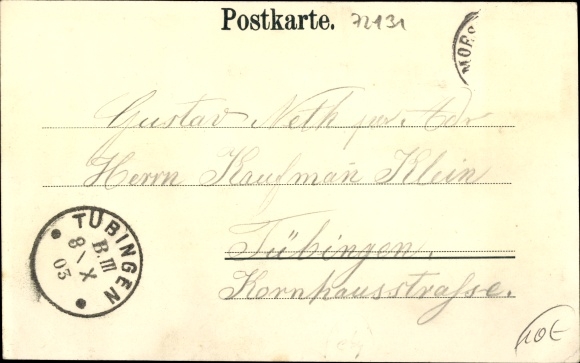 Postkarte. 72131
MOES
Gustav Neth per Adr
Herrn Kaufmañ Klein
Tübingen.
Kornhausstrasse.
TÜBINGEN
B.III
8 \ X
03